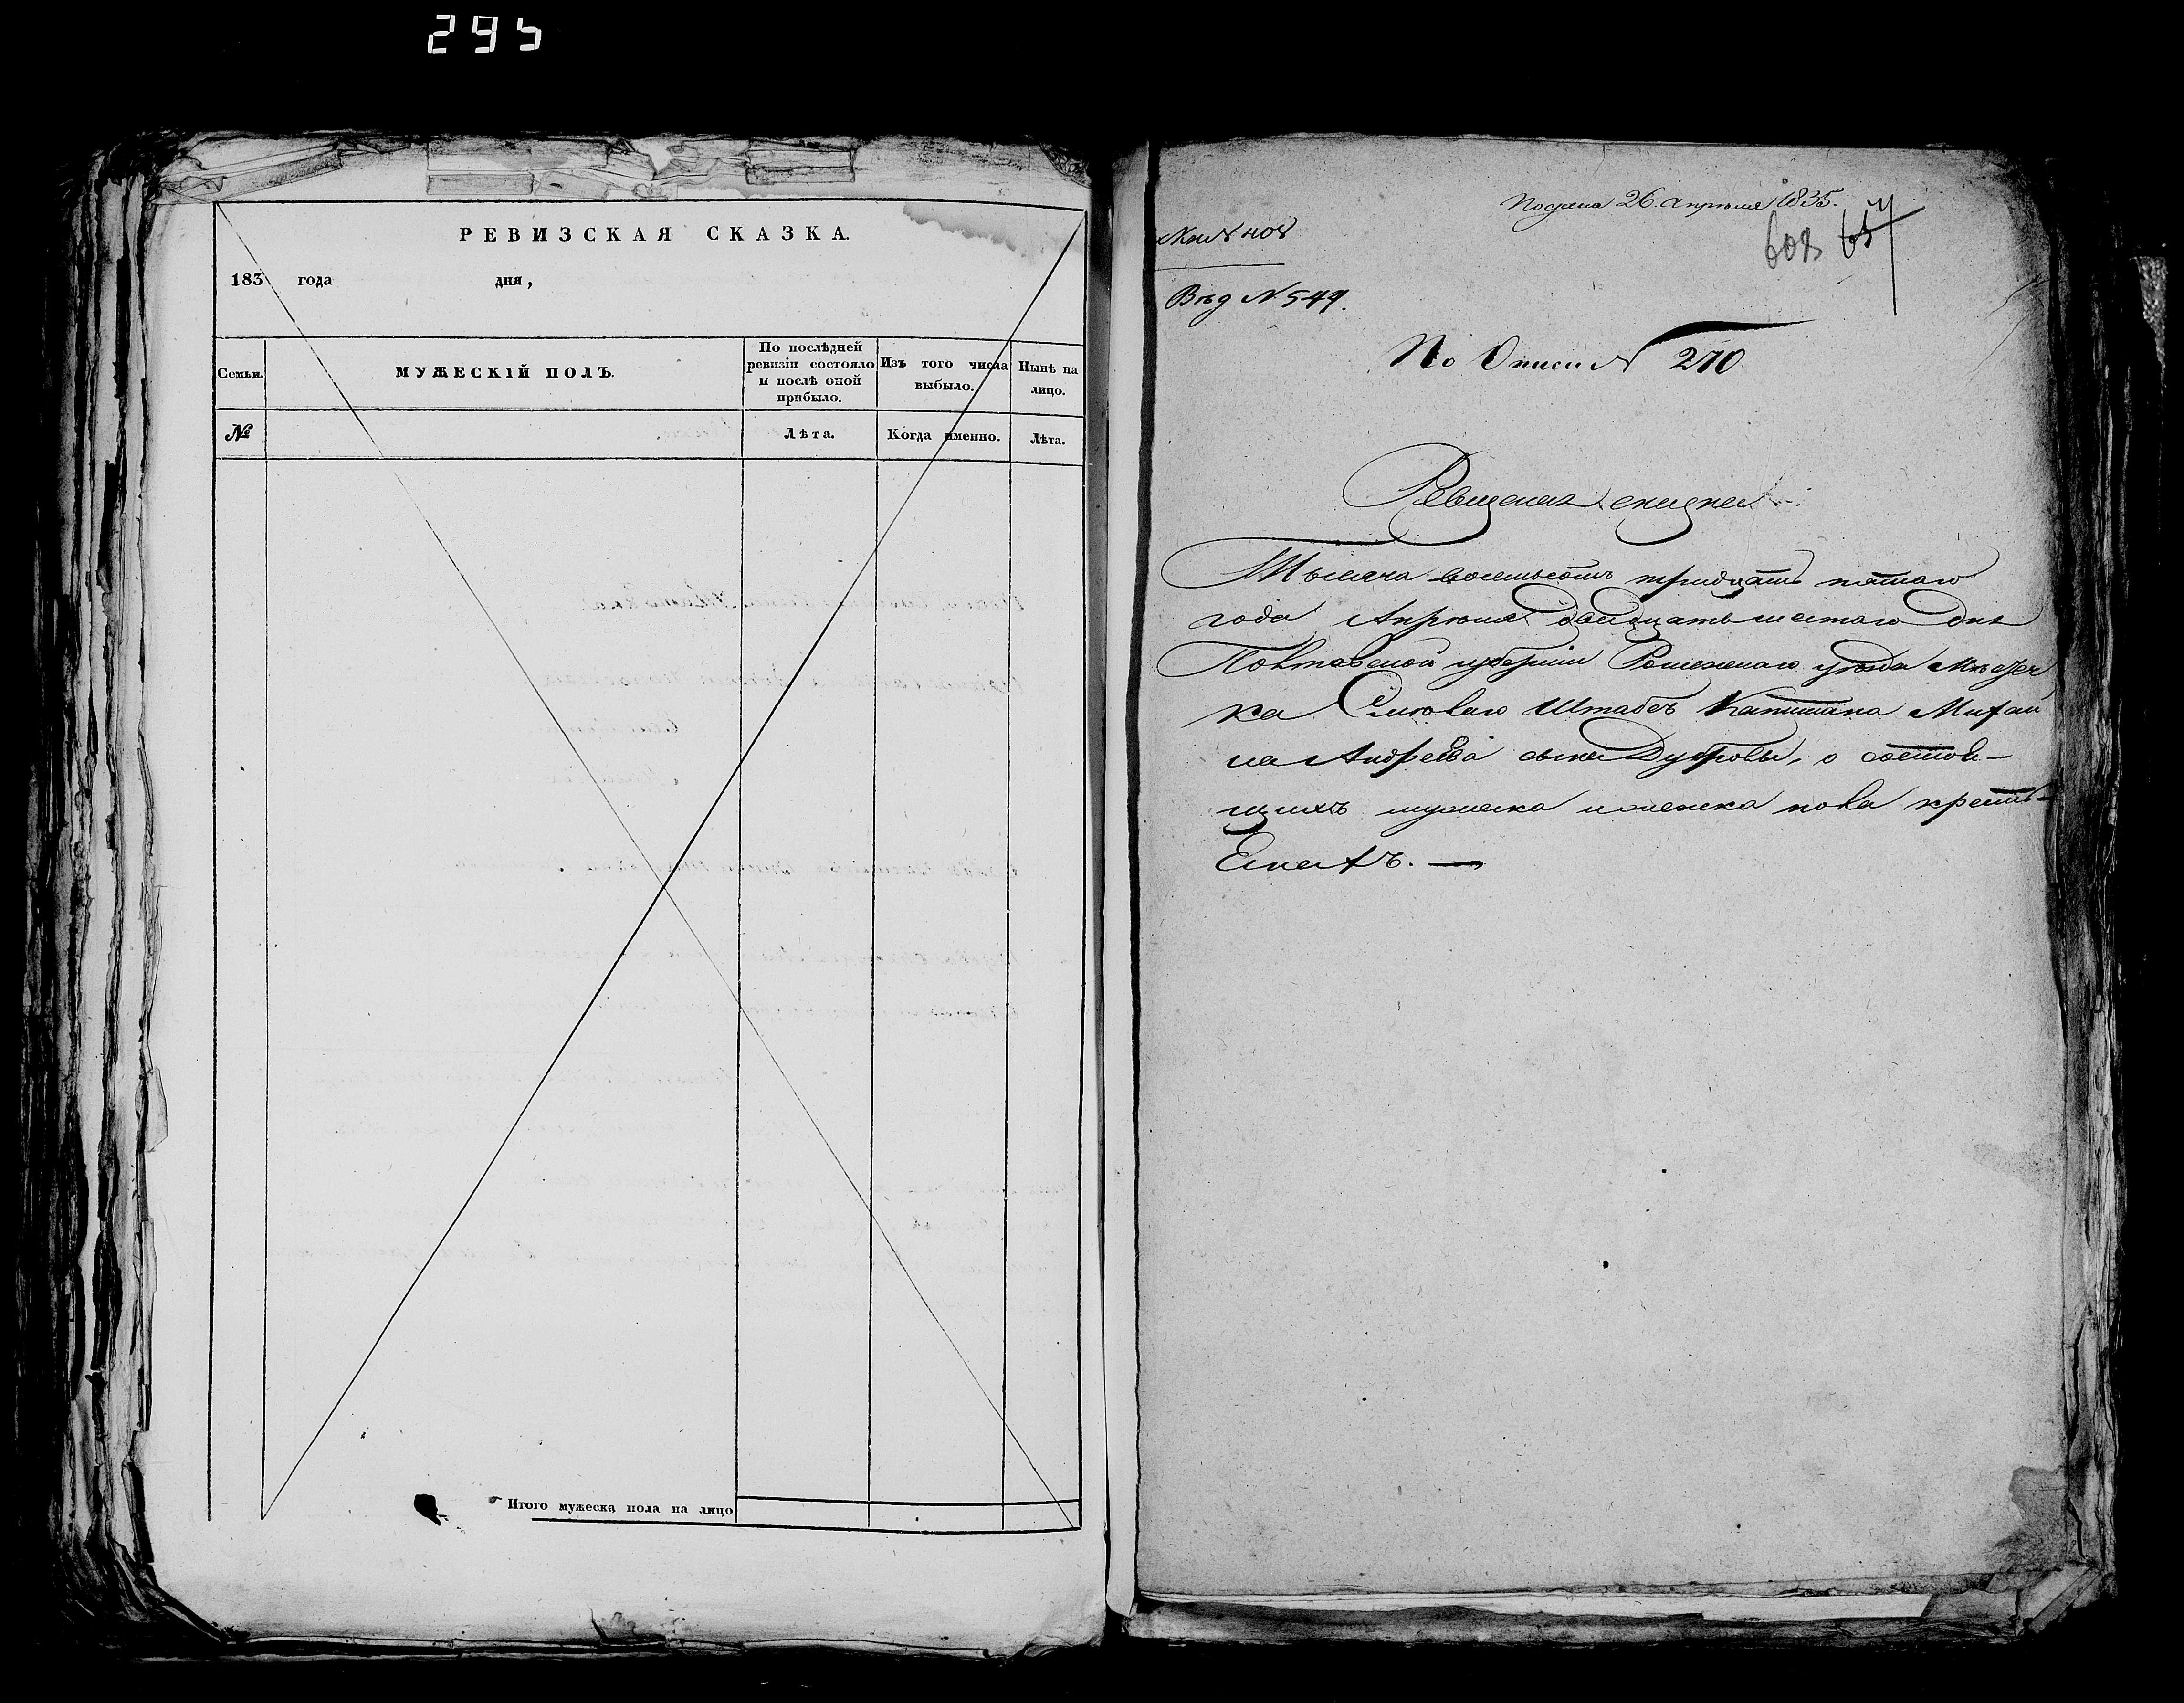 295
РЕВИЗСКАЯ СКАЗКА.
183 года дня,
Семьи.
МУЖЕСКІЙ ПОЛЪ.
По послѣдней
ревизіи состояло
и послѣ оной
прибыло.
Изъ того числа
выбыло.
Нынѣ на
лицо.
№
Лѣта.
Когда именно.
Лѣта.
Итого мужеска пола на лицо
Подана 26. апрѣля 1835.
608
Вѣд N 549.
По Описи N 270
Ревизская сказка
Тысяча восемьсотъ тридцать пятаго
года Апрѣля двадцать шестаго дня
Полтавской губерніи Роменскаго уѣзда Мѣстеч
ка Смѣлаго Штабсъ Капитана Михаи
ла Андреева сына, о состоя-
щихъ мужеска и женска пола крестья-
енахъ. —